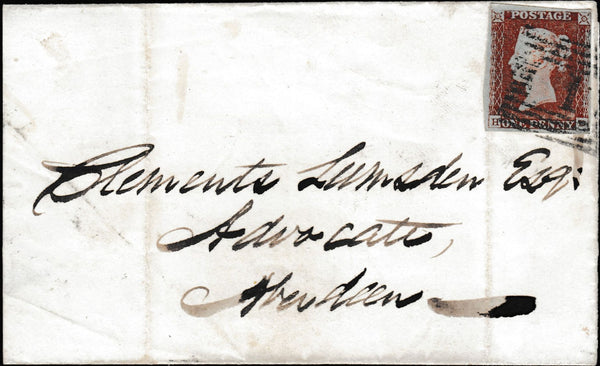 POSTAGE
H ONE PENNY
Clements Lumsden Esq:
Advocate,
Aberdeen